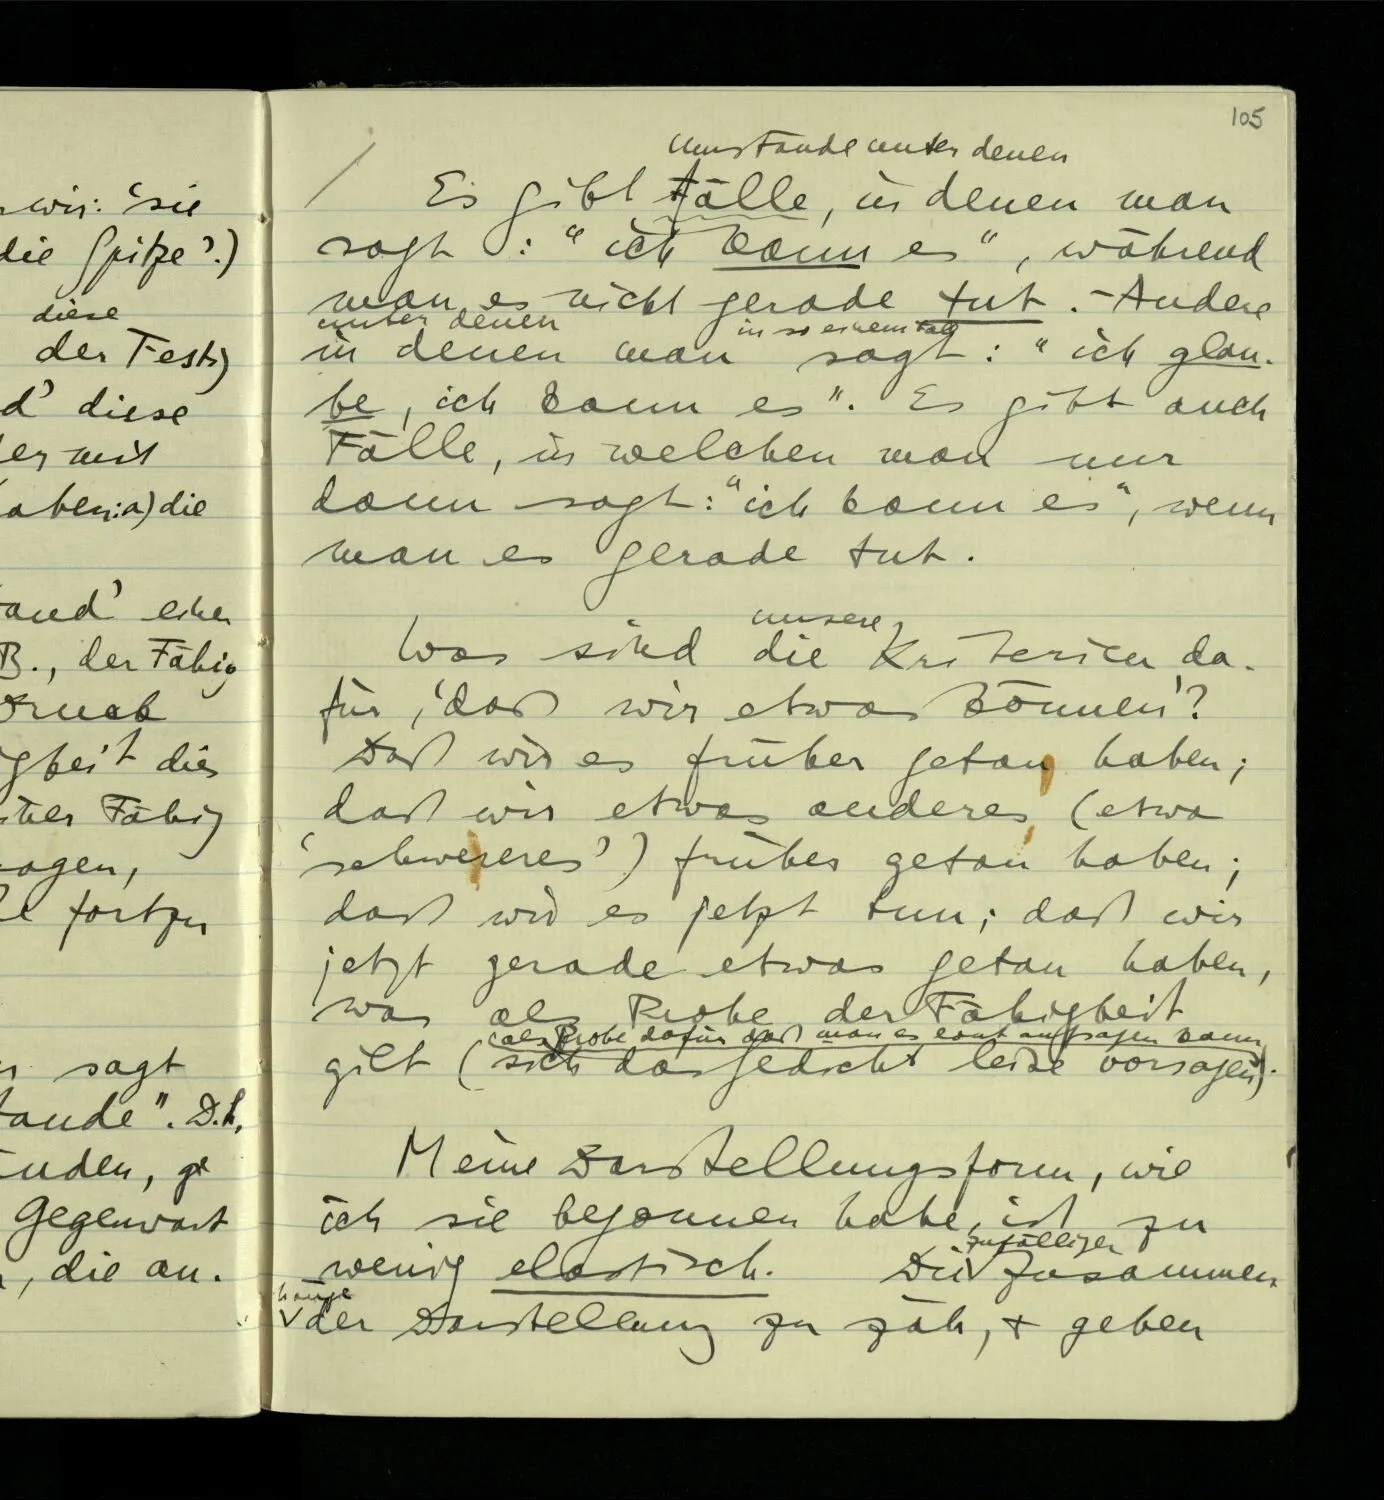 wir: 'sie
die Spitze'.)
diese
der Tests)
d' diese
mit
aben: a) die
and' einer
B., der Fähig
Druck
gkeit dies
Fähig
sagen,
fortzu
sagt
tände". D.h.
inden, ge
Gegenwart
, die an-
105
/
Umstände unter denen
Es gibt Fälle, in denen man
sagt: "ich kann es", während
man es nicht gerade tut. – Andere
unter denen in so einem Fall
in denen man sagt: "ich glau-
be, ich kann es". Es gibt auch
Fälle, in welchen man nur
dann sagt: "ich kann es", wenn
man es gerade tut.
unsere
Was sind die Kriterien da-
für, 'daß wir etwas können'?
Daß wir es früher getan haben;
daß wir etwas anderes (etwa
'schwereres') früher getan haben;
daß wir es jetzt tun; daß wir
jetzt gerade etwas getan haben,
was als Probe der Fähigkeit
(als Probe dafür daß man es laut aufsagen kann
gilt (sich das Gedicht leise vorsagen).
Meine Darstellungsform, wie
ich sie begonnen habe, ist zu
zufälligen
wenig elastisch. Die Zusammen
hänge
der Darstellung zu zäh, + geben